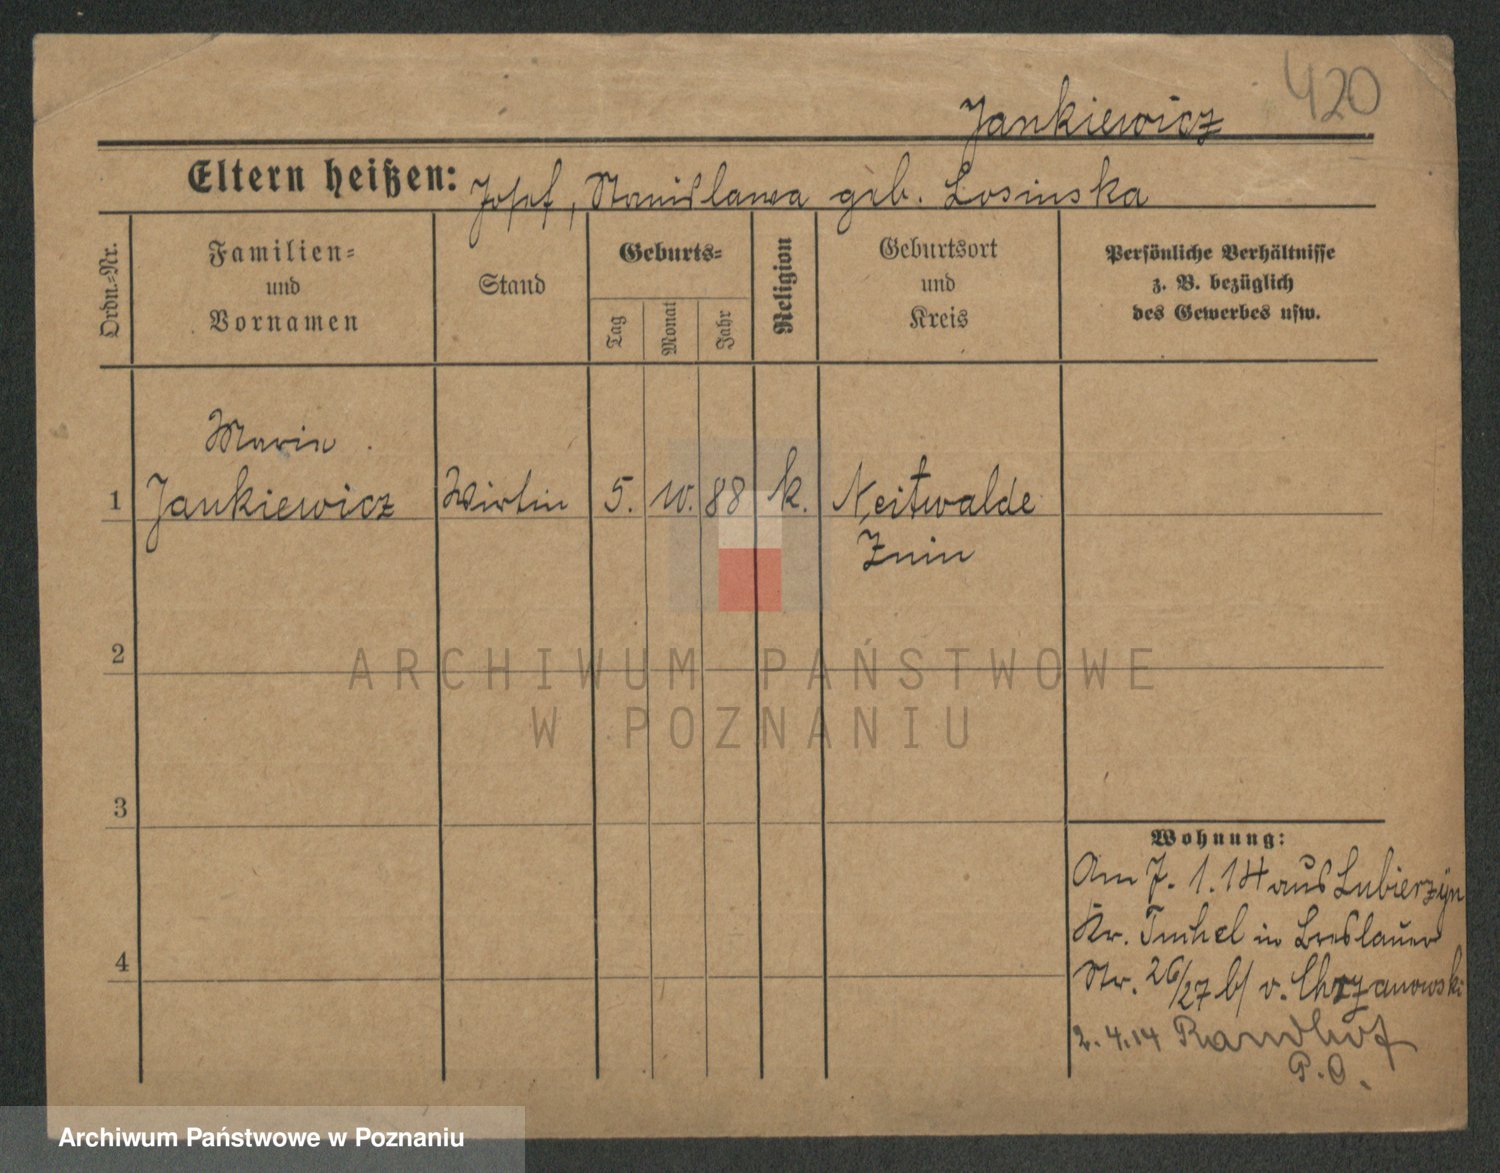 420
Jankiewicz
Eltern heißen: Josef, Stanislawa geb. Losinska
Ordn.-Nr.
Familien-
und
Vornamen
Stand
Geburts-
Tag
Monat
Jahr
Religion
Geburtsort
und
Kreis
Persönliche Verhältnisse
z. B. bezüglich
des Gewerbes usw.
Maria
1 Jankiewicz Wirtin 5. 10. 88 k. Neitwalde
Znin
2
ARCHIWUM PAŃSTWOWE
W POZNANIU
3
Wohnung:
Am 7. 1. 14 aus Lubierzyn
Kr. Tuchel in Breslauer
4
Str. 26/27 b/ v. Chrzanowski
2. 4. 14
P. O.
Archiwum Państwowe w Poznaniu